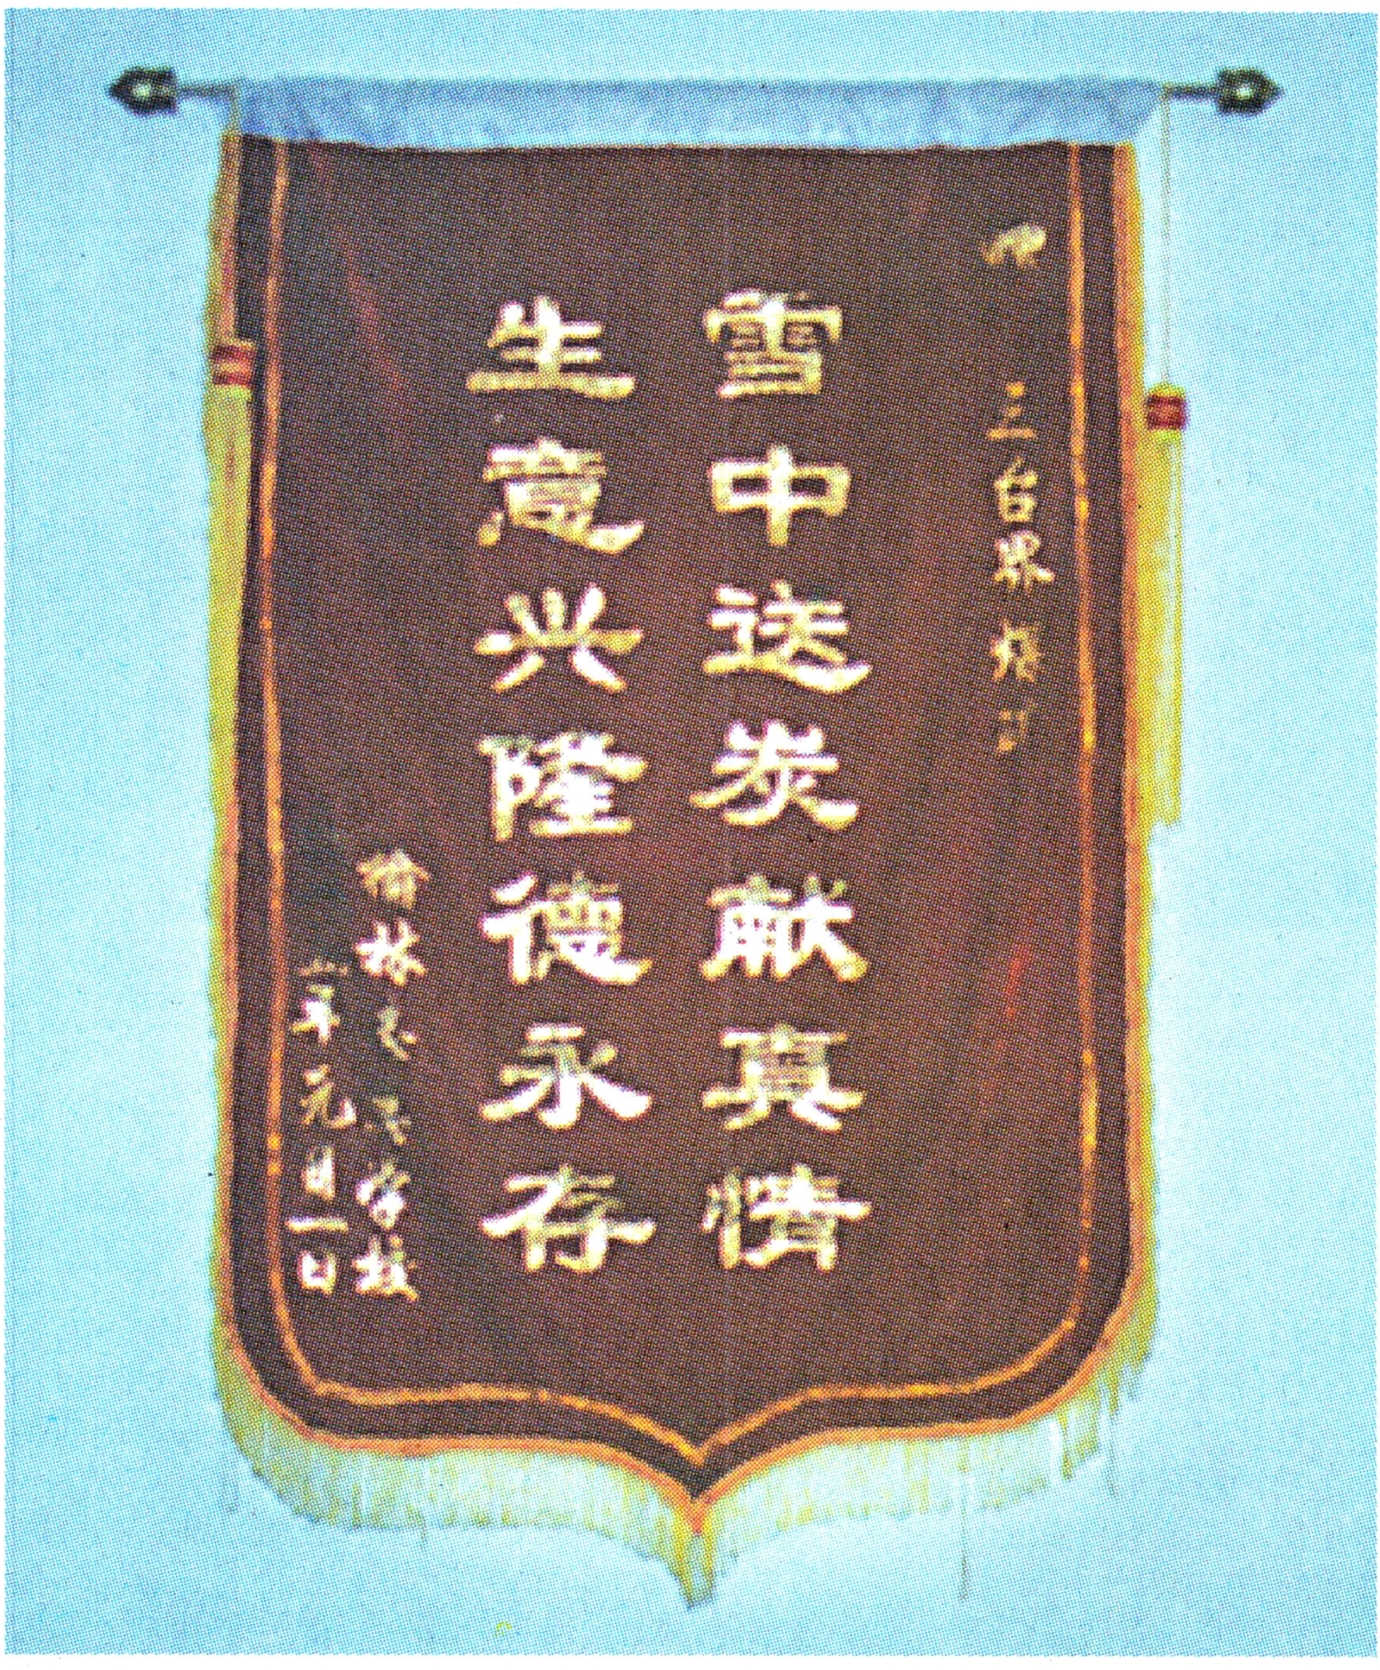 三台界煤矿
雪中送炭献真情
生意兴隆德永存
榆林学校
年元月一日